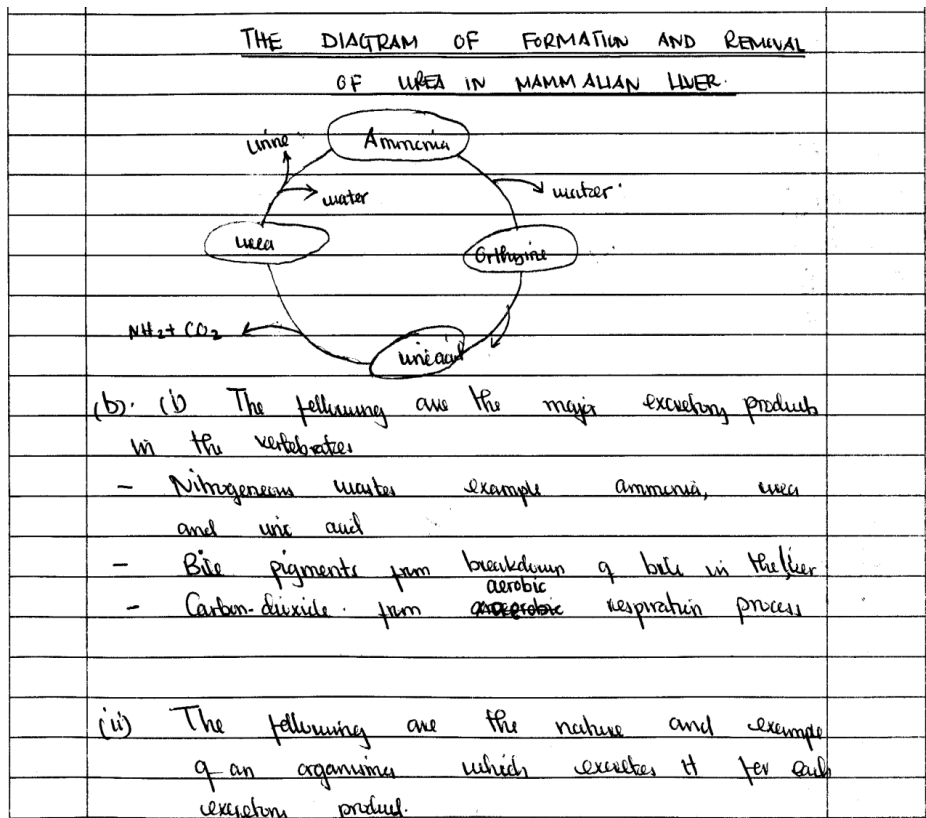 THE DIAGRAM OF FORMATION AND REMOVAL
OF UREA IN MAMMALIAN LIVER.
Ammonia
urine
water
water
urea
Orthyine
NH2 + CO2
uric acid
(b). (i) The following are the major excretory products
in the vertebrates
- Nitrogeneous wastes example ammonia, urea
and uric acid
- Bile pigments from breakdown of bile in the liver
aerobic
- Carbon-dioxide from anaerobic respiration process
(ii) The following are the nature and example
of an organisms which excretes it for each
excretory product.